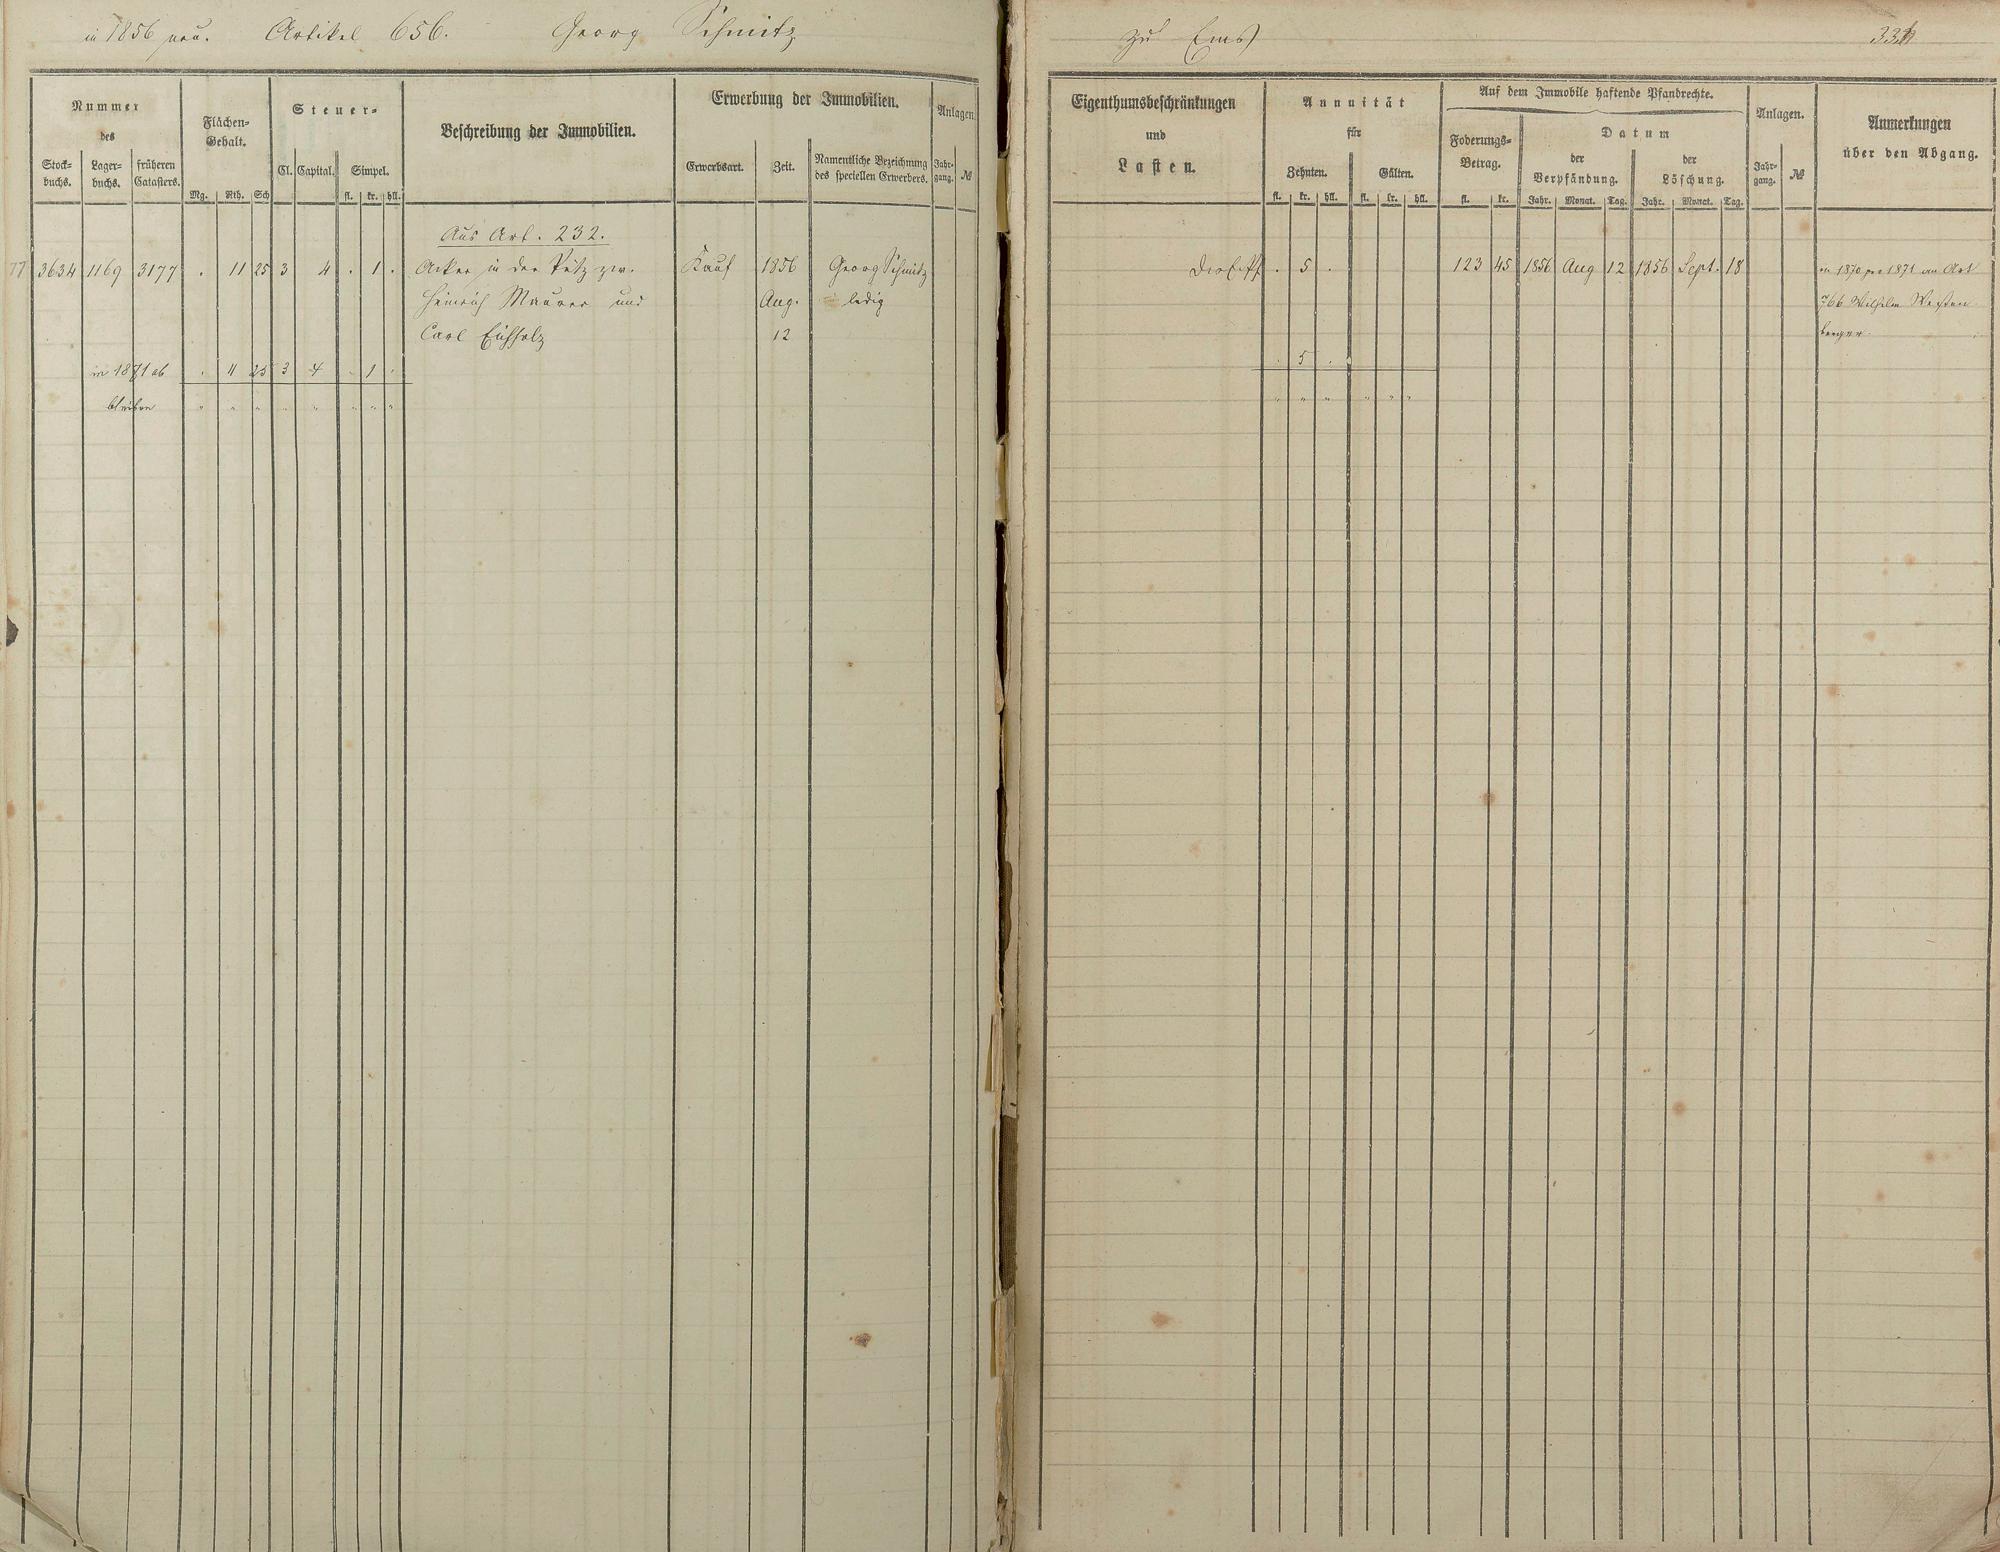 in 1856 neu. Artikel 656. Georg Schmitz
Nummer
des
Stock-
buchs.
Lager-
buchs.
früheren
Catasters.
Flächen-
Gehalt.
Mg. Rth. Sch
Steuer-
Cl. Capital. Simpel.
fl. kr. hll.
Beschreibung der Immobilien.
Erwerbung der Immobilien.
Erwerbsart. Zeit.
Namentliche Bezeichnung
des speciellen Erwerbers.
Anlagen.
Jahr-
gang.
№
Aus Art. 232.
77 3634 1169 3177 . 11 25 3 4 . 1 . Acker in der Pütz zw. Kauf 1856 Georg Schmitz
Heinrich Maurer und Aug. ledig
Carl Eichholz 12
in 1871 ab . 11 25 3 4 . 1 .
bleiben " " " " " " " "
zu Ems
Eigenthumsbeschränkungen
und
Lasten.
Annuität
für
Zehnten. Gülten.
fl. kr. hll. fl. kr. hll.
Auf dem Immobile haftende Pfandrechte.
Foderungs-
Betrag.
fl. kr.
Datum
der
Verpfändung.
Jahr. Monat. Tag.
der
Löschung.
Jahr. Monat. Tag.
Anlagen.
Jahr-
gang.
№
Anmerkungen
über den Abgang.
. 5 . 123 45 1856 Aug 12 1856 Sept. 18 in 1870 pro 1871 an Art
766 Wilhelm
berger.
. 5 .
" " " " " "